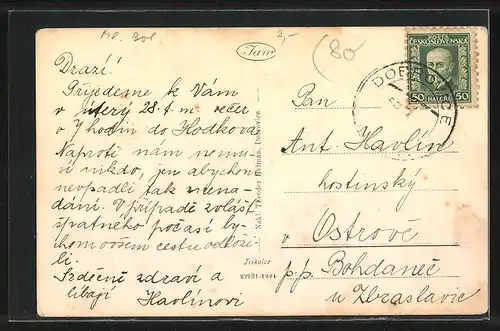 Ml. Bol
2/-
Turo
80
POŠTA
ČESKOSLOVENSKÁ
50 HALÉŘŮ 50
Drazí!
Přijedeme k Vám
v úterý 28. t. m. večer
v 7 hodin do Hodkova.
Naproti nám nemu-
sí nikdo, jen abychom
neopadli tak znena-
dání. V případě zvlášt
špatného počasí by-
chom ovšem cestu odloži-
li.
Srdečně zdraví a
líbají Havlínovi
Trikolor
Pan
Ant. Havlín
hostinský
v Ostrově
p. p. Bohdaneč
u Zbraslavic